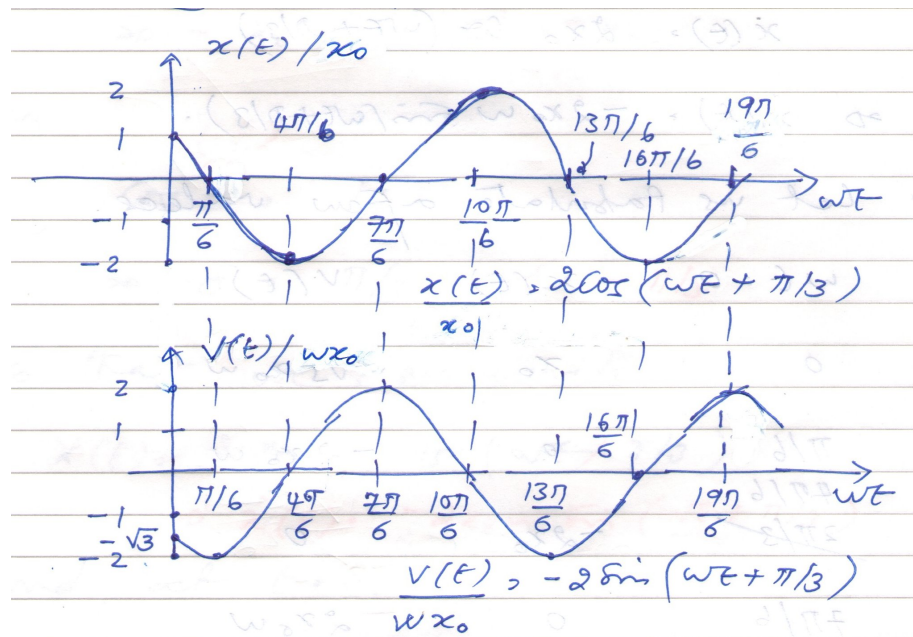 x(t)/x₀
2
1
-1
-2
4π/6
13π/6
16π/6
19π/6
π/6
7π/6
10π/6
ωt
x(t)/x₀ = 2Cos(ωt + π/3)
V(t)/ωx₀
2
1
-1
-√3
-2
16π/6
π/6
4π/6
7π/6
10π/6
13π/6
19π/6
ωt
V(t)/ωx₀ = -2Sin(ωt + π/3)